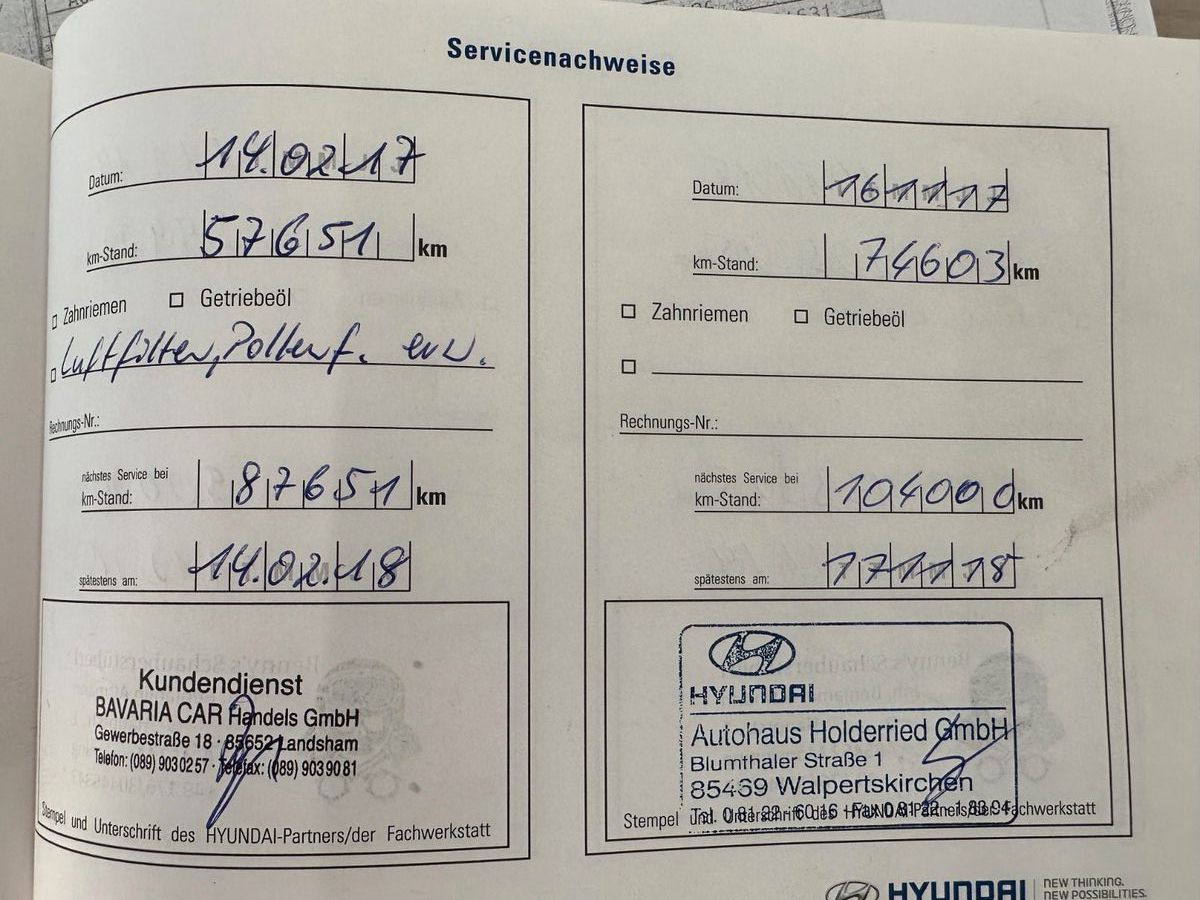 Servicenachweise
Datum: 14.02.17
km-Stand: 57651 km
Zahnriemen Getriebeöl
Luftfilter, Pollenf. ern.
Rechnungs-Nr.:
nächstes Service bei
km-Stand: 87651 km
spätestens am: 14.02.18
Kundendienst
BAVARIA CAR Handels GmbH
Gewerbestraße 18 · 85652 Landsham
Telefon: (089) 903 02 57 · Telefax: (089) 903 90 81
Stempel und Unterschrift des HYUNDAI-Partners/der Fachwerkstatt
Datum: 161117
km-Stand: 74603 km
Zahnriemen Getriebeöl
Rechnungs-Nr.:
nächstes Service bei
km-Stand: 104000 km
spätestens am: 171118
HYUNDAI
Autohaus Holderried GmbH
Blumthaler Straße 1
85469 Walpertskirchen
Tel. 0 81 22 - 60 16 - Fax 0 81 22 - 1 83 94
Stempel und Unterschrift des HYUNDAI-Partners/der Fachwerkstatt
HYUNDAI
NEW THINKING.
NEW POSSIBILITIES.